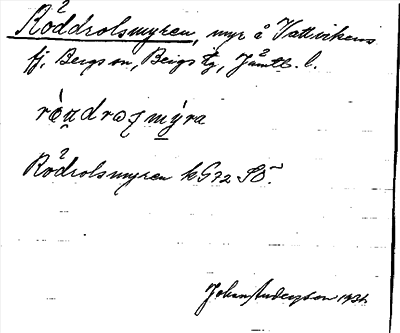 Röddrolsmyren, myr å Vattvikens
fj, Bergs sn, Bergs tg, Jämtl. l.
rò̱ṉdrəʃmýra
Rödrolsmyren kG72 SÖ.
Johan Anderzson 1931.